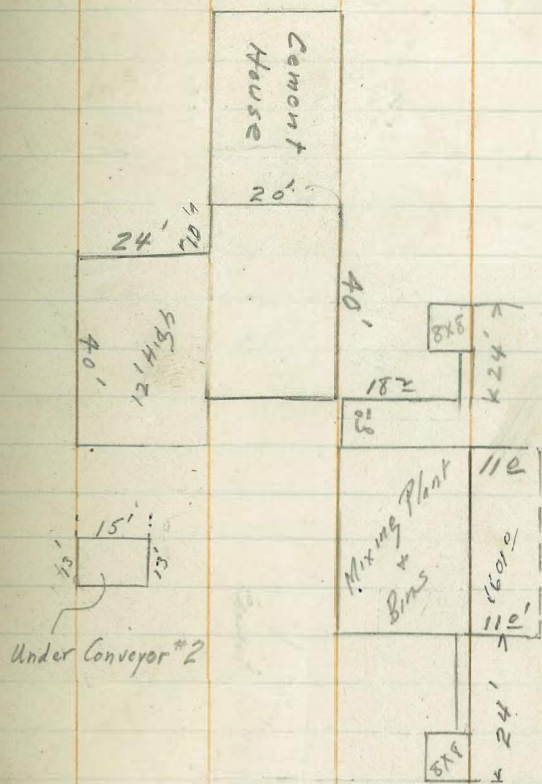 Cement
House
20'
24'
40'
12' High
40'
8x8
24'
18
Mixing Plant
+
Bins
110
110'
15'
13'
13'
Under Conveyor #2
24'
8x8